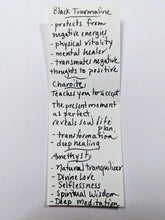 Black Tourmaline
- protects from
negative energies
- physical vitality
- mental healer
- transmutes negative
thoughts to positive
Charoite
Teaches you to accept
The present moment
as perfect,
reveals soul life
plan
- transformation
- deep healing
Amethyst
- Natural tranquilizer
- Divine Love
- Selflessness
- Spiritual Wisdom
- Deep Meditation